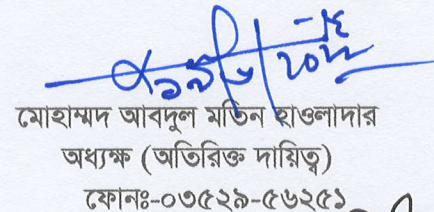 মোহাম্মদ আবদুল মতিন হাওলাদার
অধ্যক্ষ (অতিরিক্ত দায়িত্ব)
ফোনঃ-০৩৫২৯-৫৬২৫১